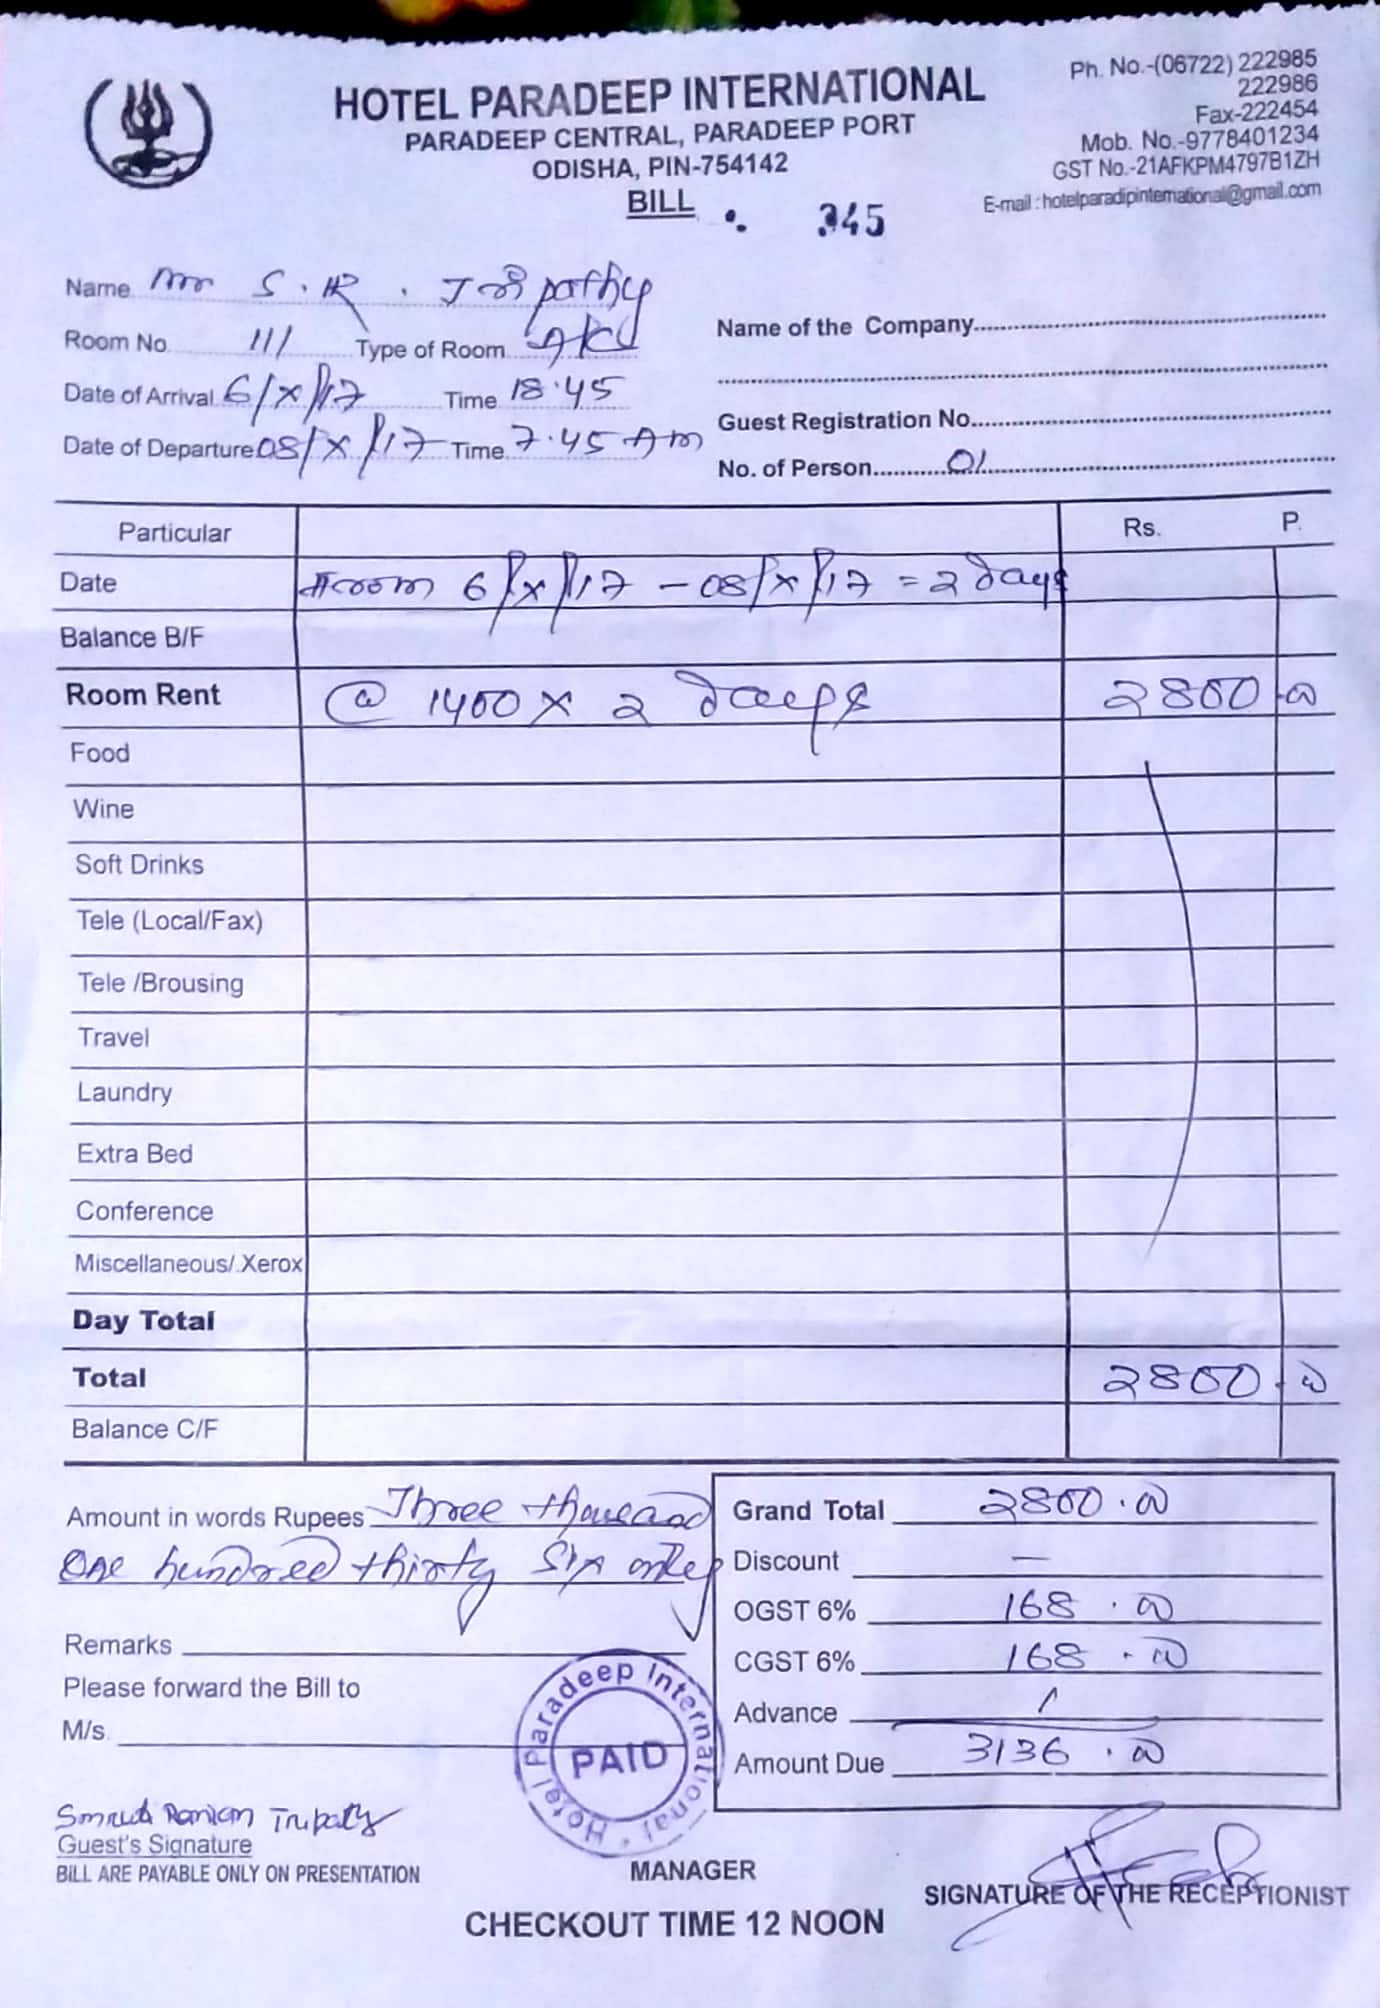 HOTEL PARADEEP INTERNATIONAL
PARADEEP CENTRAL, PARADEEP PORT
ODISHA, PIN-754142
BILL
345
Ph. No.-(06722) 222985
222986
Fax-222454
Mob. No.-9778401234
GST No.-21AFKPM4797B1ZH
E-mail : hotelparadipinternational@gmail.com
Name Mr S.R. Tripathy
Room No. 111 Type of Room
Date of Arrival 6/X/17 Time 18.45
Date of Departure 08/X/17 Time 7.45 Am
Name of the Company
Guest Registration No.
No. of Person 01
Particular Rs. P.
Date #room 6/X/17 - 08/X/17 = 2 days
Balance B/F
Room Rent @ 1400 x 2 days 2800.00
Food
Wine
Soft Drinks
Tele (Local/Fax)
Tele /Brousing
Travel
Laundry
Extra Bed
Conference
Miscellaneous/.Xerox
Day Total
Total 2800.00
Balance C/F
Amount in words Rupees Three thousand
One hundred thirty six only
Remarks
Please forward the Bill to
M/s.
Grand Total 2800.00
Discount —
OGST 6% 168.00
CGST 6% 168.00
Advance /
Amount Due 3136.00
Hotel Paradeep International
PAID
Smruti Ranjan Tripathy
Guest's Signature
BILL ARE PAYABLE ONLY ON PRESENTATION
MANAGER
SIGNATURE OF THE RECEPTIONIST
CHECKOUT TIME 12 NOON